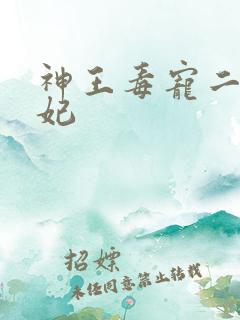 神王毒寵二
妃
招嫖
未经同意禁止转载